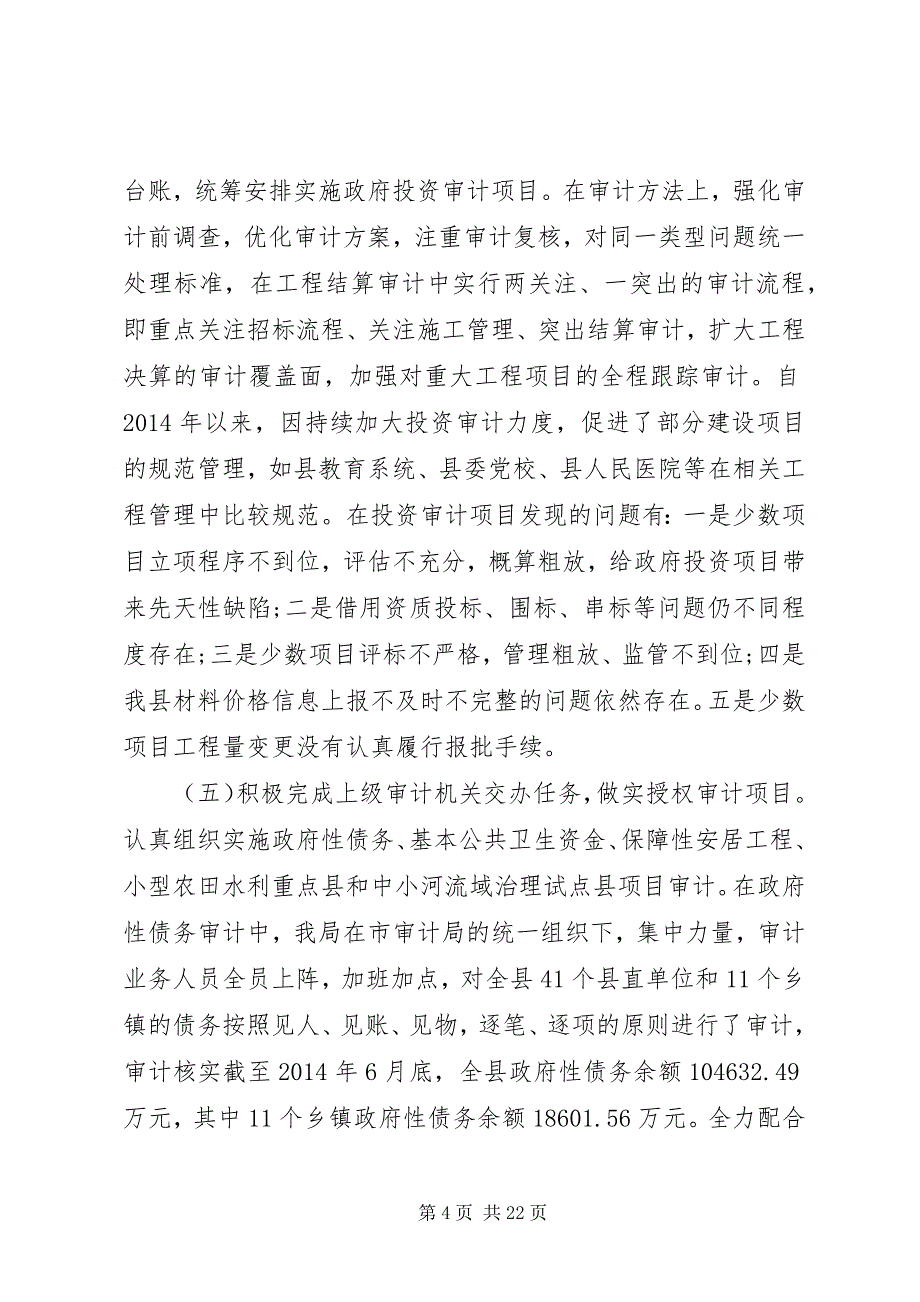 台账，统筹安排实施政府投资审计项目。在审计方法上，强化审
计前调查，优化审计方案，注重审计复核，对同一类型问题统一
处理标准，在工程结算审计中实行两关注、一突出的审计流程，
即重点关注招标流程、关注施工管理、突出结算审计，扩大工程
决算的审计覆盖面，加强对重大工程项目的全程跟踪审计。自
2014 年以来，因持续加大投资审计力度，促进了部分建设项目
的规范管理，如县教育系统、县委党校、县人民医院等在相关工
程管理中比较规范。在投资审计项目发现的问题有：一是少数项
目立项程序不到位，评估不充分，概算粗放，给政府投资项目带
来先天性缺陷;二是借用资质投标、围标、串标等问题仍不同程
度存在;三是少数项目评标不严格，管理粗放、监管不到位;四是
我县材料价格信息上报不及时不完整的问题依然存在。五是少数
项目工程量变更没有认真履行报批手续。
（五）积极完成上级审计机关交办任务，做实授权审计项目。
认真组织实施政府性债务、基本公共卫生资金、保障性安居工程、
小型农田水利重点县和中小河流域治理试点县项目审计。在政府
性债务审计中，我局在市审计局的统一组织下，集中力量，审计
业务人员全员上阵，加班加点，对全县 41 个县直单位和 11 个乡
镇的债务按照见人、见账、见物，逐笔、逐项的原则进行了审计，
审计核实截至 2014 年 6 月底，全县政府性债务余额 104632.49
万元，其中 11 个乡镇政府性债务余额 18601.56 万元。全力配合
第 4 页 共 22 页